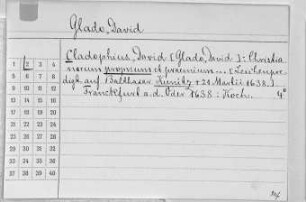 Glade, David
Cladephius, David [Glade, David]: Christia
norum progressus et praemium... (Leichenpre
digt auf Balthasar Kunitz + 21. Martii 1638.)
Franckfurt a. d. Oder 1638: Koch. 4°
1 2 3 4
5 6 7 8
9 10 11 12
13 14 15 16
17 18 19 20
21 22 23 24
25 26 27 28
29 30 31 32
33 34 35 36
37 38 39 40